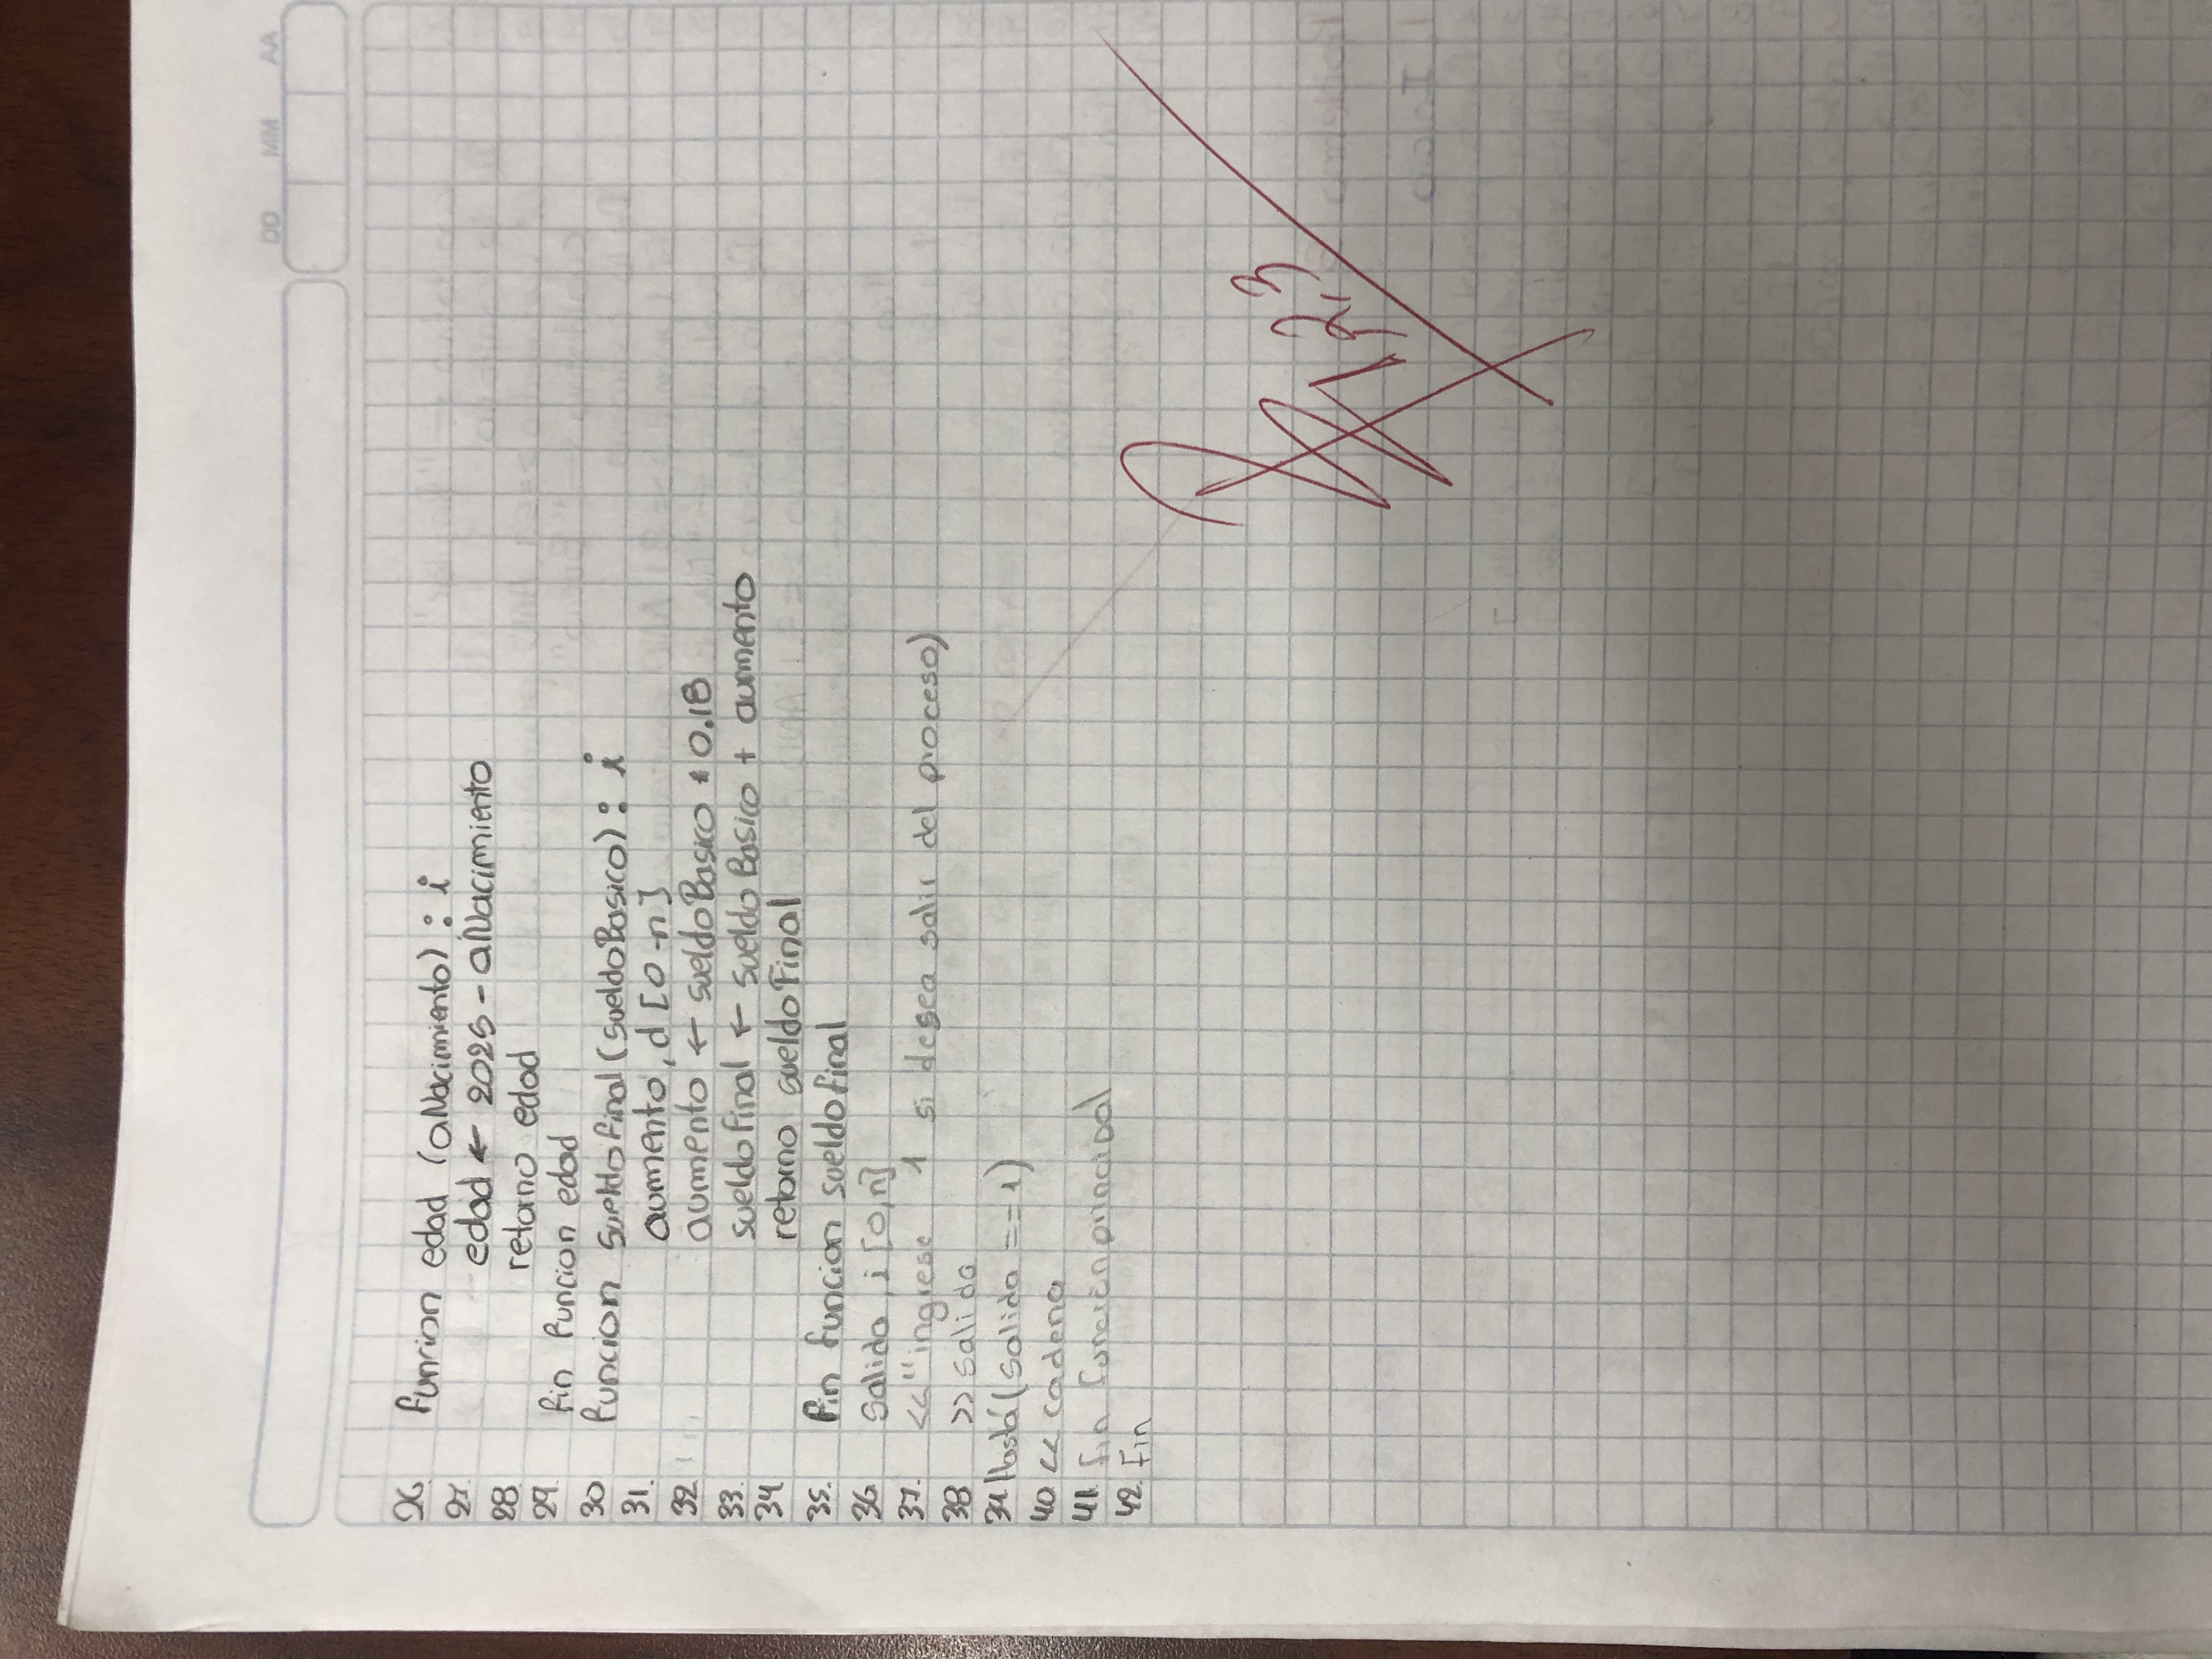 AA MM DD
26. funcion edad (aNacimiento) : i
27. edad ← 2025 - aNacimiento
28 retorno edad
29. fin funcion edad
30 funcion sueldofinal (sueldoBasico) : i
31. aumento, d [0-n]
32 aumento ← sueldoBasico * 0.18
33. sueldofinal ← sueldoBasico + aumento
34 retorno sueldoFinal
35. fin funcion sueldofinal
36 Salida, i [0,n]
37. <<"ingrese 1 si desea salir del proceso)
38 >> salida
39 Hasta (Salida == 1)
40 << cadena
41. fin funcion principal
42. Fin
1, 2, 3